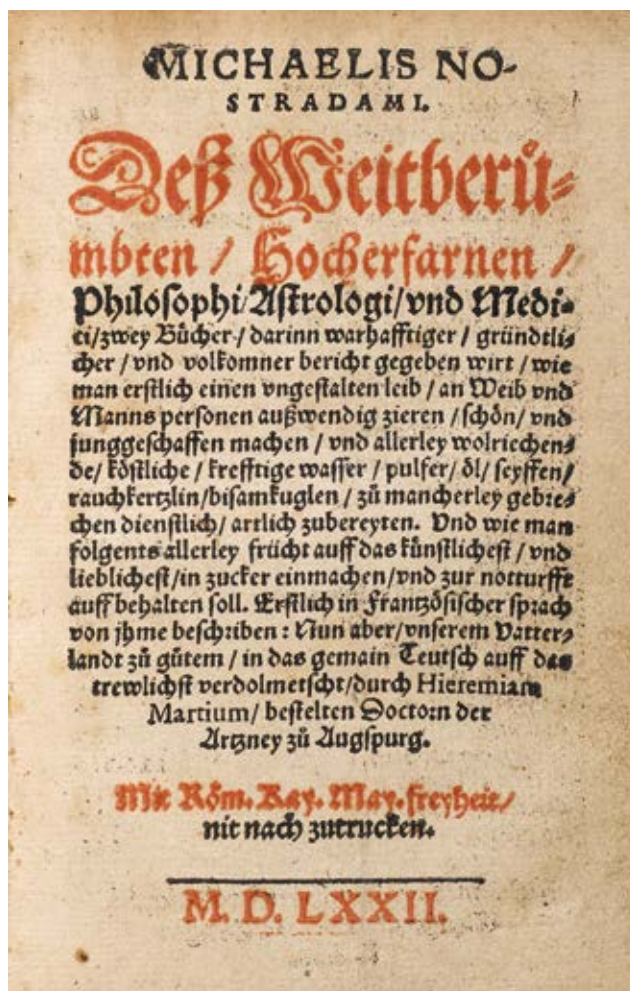 MICHAELIS NO-
STRADAMI.
Deß Weitberů-
mbten / Hocherfarnen /
Philosophi/Astrologi/vnd Medi-
ci/zwey Bücher / darinn warhafftiger / gründtli-
cher / vnd volkomner bericht gegeben wirt / wie
man erstlich einen vngestalten leib / an Weib vnd
Manns personen außwendig zieren / schön / vnd
junggeschaffen machen / vnd allerley wolriechen-
de / köstliche / krefftige wasser / pulfer / öl / seyffen /
rauchkertzlin/bisamkuglen / zů mancherley gebre-
chen dienstlich / artlich zubereyten. Vnd wie man
folgents allerley frücht auff das künstlichest / vnd
lieblichest/in zucker einmachen/vnd zur notturfft
auff behalten soll. Erstlich in Frantzösischer sprach
von jhme beschriben : Nun aber/vnserem Vatter-
landt zů gůtem / in das gemain Teutsch auff das
trewlichst verdolmetscht/durch Hieremiam
Martium / bestelten Doctorn der
Artzney zů Augspurg.
Mit Röm. Kay. May. freyheit/
nit nach zutrucken.
M. D. LXXII.